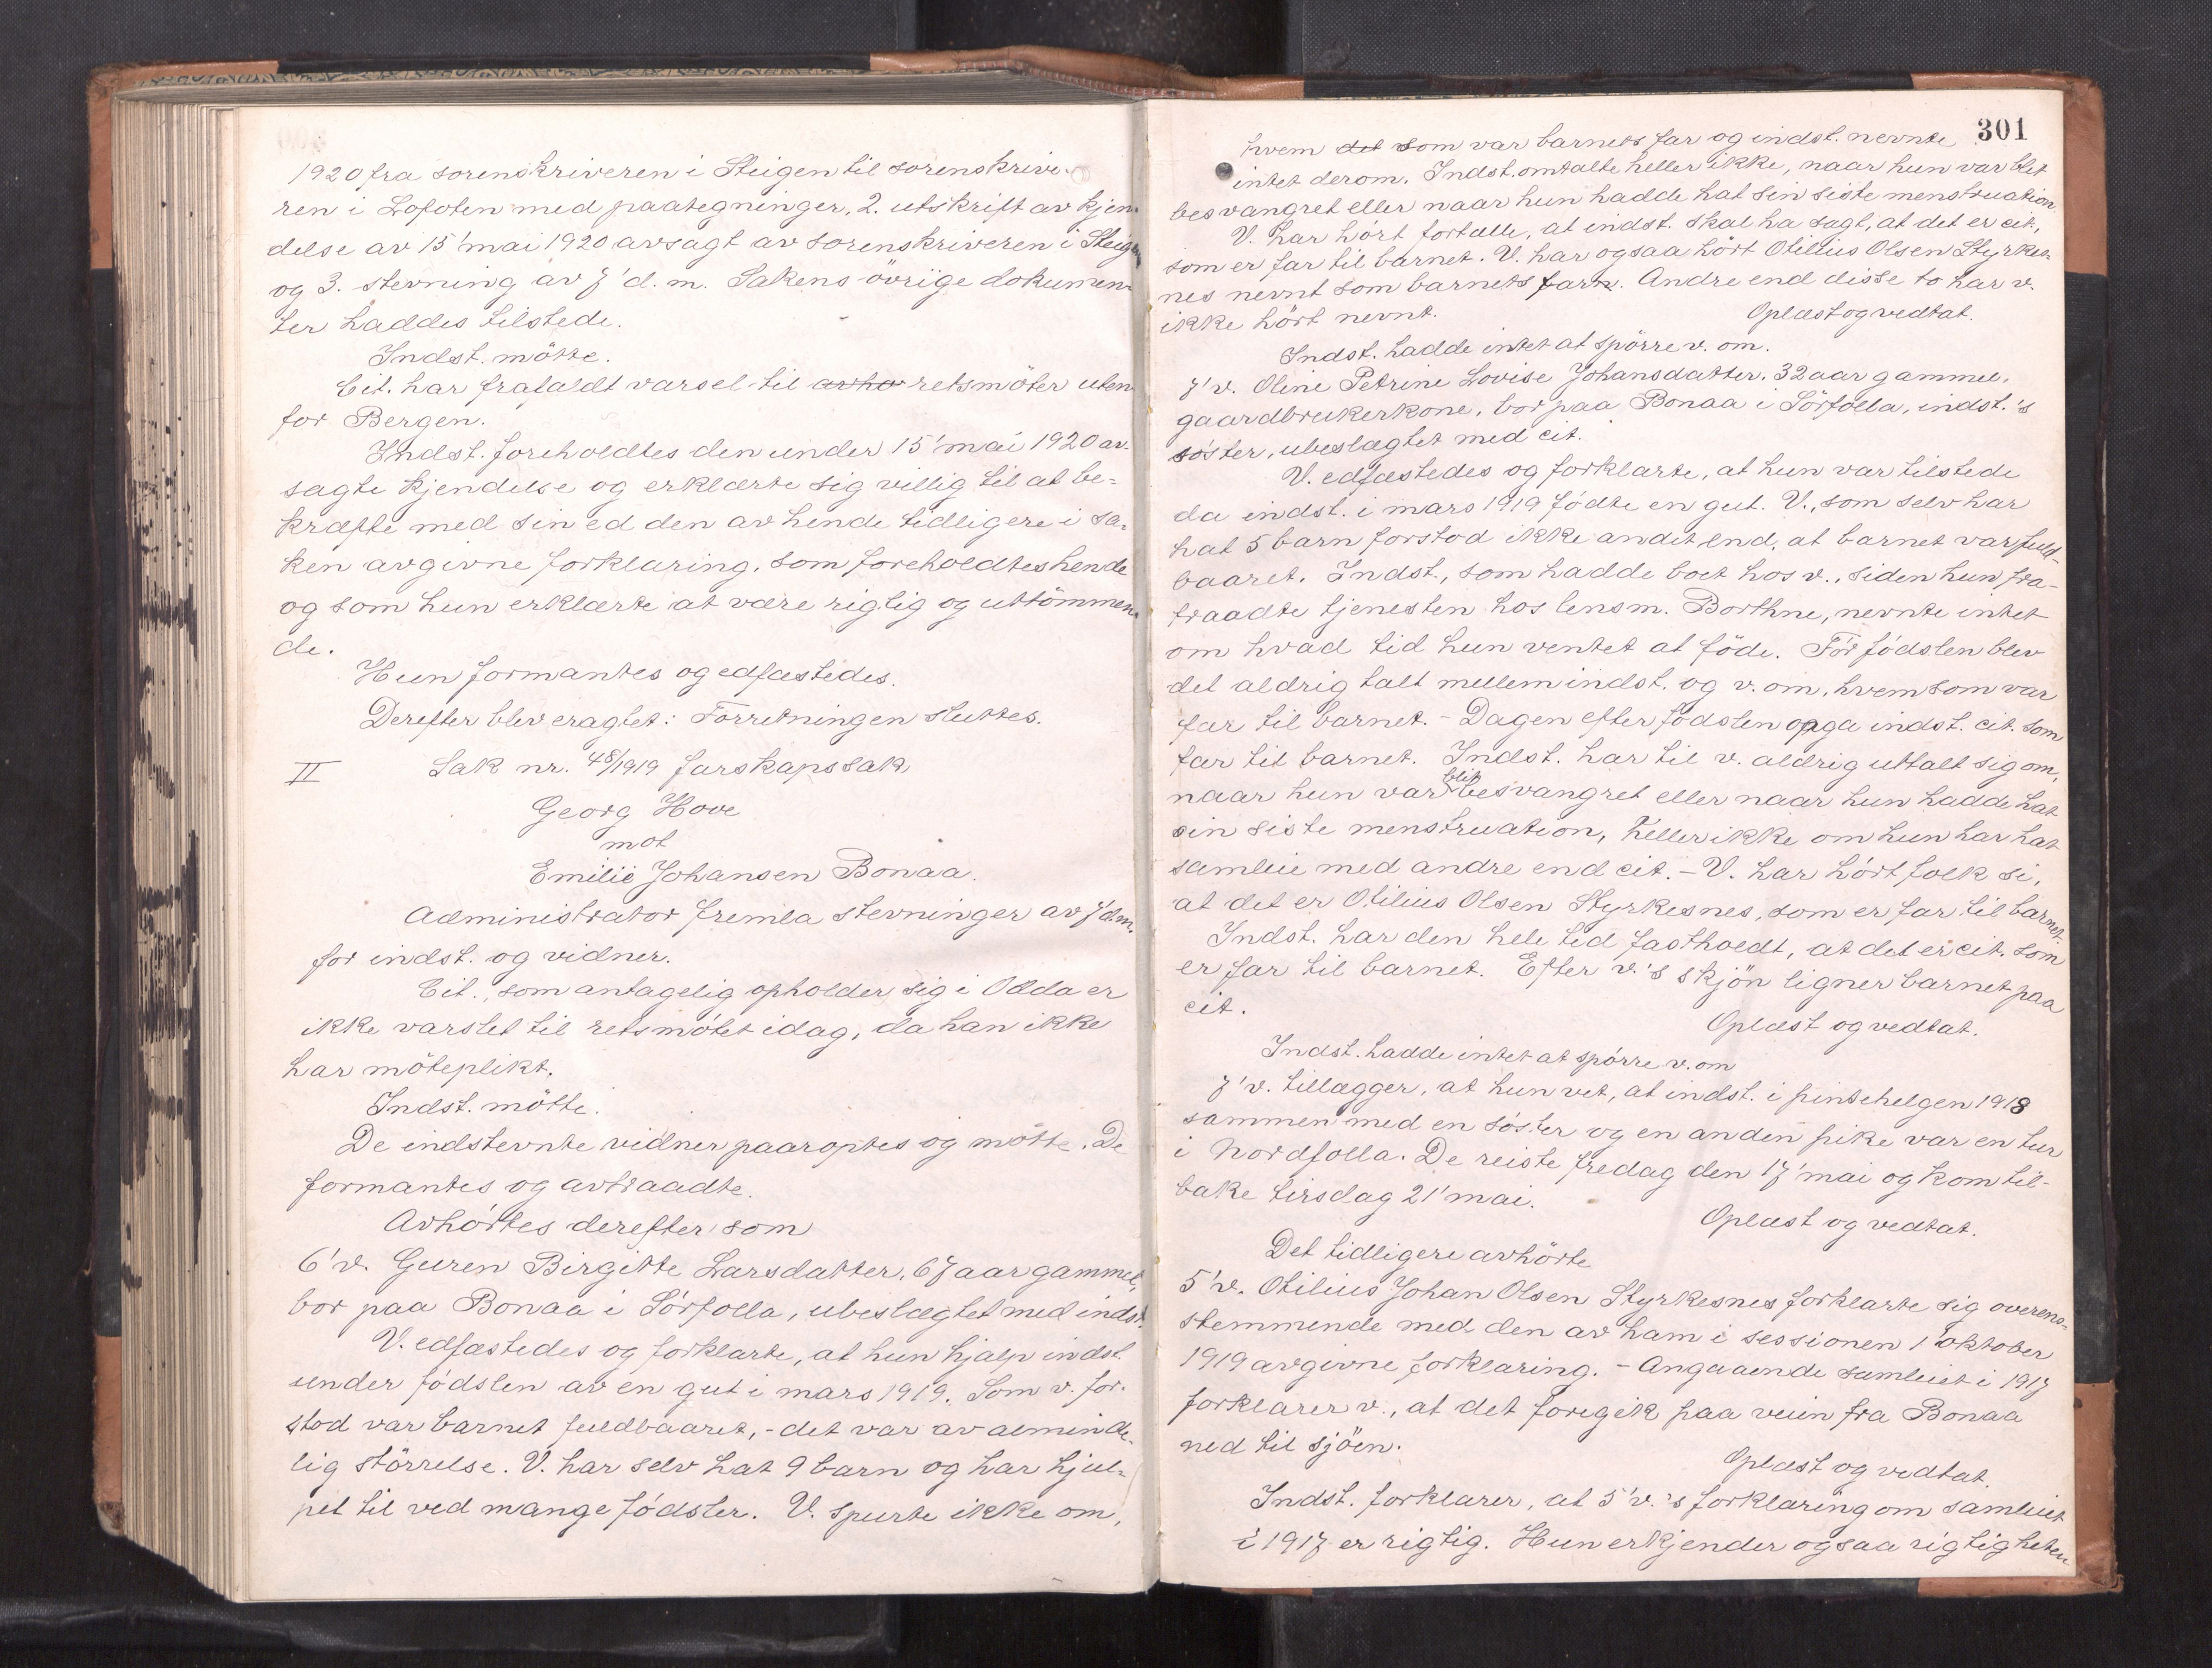 1920 fra sorenskriveren i Steigen til sorenskrive-
ren i Lofoten med paategninger, 2. utskrift av kjen-
delse av 15' mai 1920 avsagt av sorenskriveren i Steigen
og 3. stevning av 7' d. m. Sakens övrige dokumen-
ter haddes tilstede.
Indst. mötte.
Cit. har frafaldt varsel til avhø retsmöter uten-
for Bergen.
Indst. foreholdtes den under 15' mai 1920 av-
sagte kjendelse og erklærte sig villig til at be-
kræfte med sin ed den av hende tidligere i sa-
ken avgivne forklaring, som foreholdtes hende
og som hun erklærte at være rigtig og uttömmen-
de.
Hun formantes og edfæstedes.
Derefter blev eragtet: Forretningen sluttes.
II Sak nr. 48/1919 farskapssak
Georg Hove
mot
Emilie Johansen Bonaa.
Administrator fremla stevninger av 7' d.m.
for indst. og vidner.
Cit., som antagelig opholder sig i Odda er
ikke varslet til retsmötet idag, da han ikke
har möteplikt.
Indst. mötte.
De indstevnte vidner paaroptes og mötte. De
formantes og avtraadte.
Avhörtes derefter som
6' v. Guren Birgitte Larsdatter, 67 aar gammel,
bor paa Bonaa i Sörfolla, ubeslægtet med indst.
V. edfæstedes og forklarte, at hun hjalp indst.
under födslen av en gut i mars 1919. Som v. for-
stod var barnet fuldbaaret, - det var av alminde-
lig störrelse. V. har selv hat 9 barn og har hjul-
pet til ved mange födsler. V. spurte ikke om,
301
hvem det som var barnets far og indst. nevnte
intet derom. Indst. omtalte heller ikke, naar hun var blet
besvangret eller naar hun hadde hat sin siste menstruation.
V. har hört fortælle, at indst. skal ha sagt, at det er cit.,
som er far til barnet. V. har ogsaa hört Otilius Olsen Styrkes-
nes nevnt som barnets far. Andre end disse to har v.
ikke hört nevnt.
Oplæst og vedtat.
Indst. hadde intet at spörre v. om.
7' v. Oline Petrine Lovise Johansdatter. 32 aar gammel,
gaardbrukerkone, bor paa Bonaa i Sörfolla, indst.'s
söster, ubeslægtet med cit.
V. edfæstedes og forklarte, at hun var tilstede
da indst. i mars 1919 födte en gut. V., som selv har
hat 5 barn forstod ikke andet end, at barnet var fuld-
baaret. Indst., som hadde boet hos v., siden hun fra-
traadte tjenesten hos lensm. Borthne, nevnte intet
om hvad tid hun ventet at föde. Før födslen blev
det aldrig talt mellem indst. og v. om, hvem som var
far til barnet. - Dagen efter födslen opga indst. cit. som
far til barnet. Indst. har til v. aldrig uttalt sig om,
naar hun var blit besvangret eller naar hun hadde hat
sin siste menstruation, heller ikke om hun har hat
samleie med andre end cit. - V. har hört folk si,
at det er Otilius Olsen Styrkesnes, som er far til barnet.
Indst. har den hele tid fastholdt, at det er cit. som
er far til barnet. Efter v.'s skjön ligner barnet paa
cit.
Oplæst og vedtat.
Indst. hadde intet at spörre v. om
7' v. tillægger, at hun vet, at indst. i pinsehelgen 1918
sammen med en söster og en anden pike var en tur
i Nordfolla. De reiste fredag den 17' mai og kom til-
bake tirsdag 21' mai.
Oplæst og vedtat.
Det tidligere avhörte
5' v. Otilius Johan Olsen Styrkesnes forklarte sig overens-
stemmende med den av ham i sessionen 1' oktober
1919 avgivne forklaring. - Angaaende samleiet i 1917
forklarer v., at det foregik paa veien fra Bonaa
ned til sjöen.
Oplæst og vedtat.
Indst. forklarer, at 5' v.'s forklaring om samleiet
i 1917 er rigtig. Hun erkjender ogsaa rigtigheten